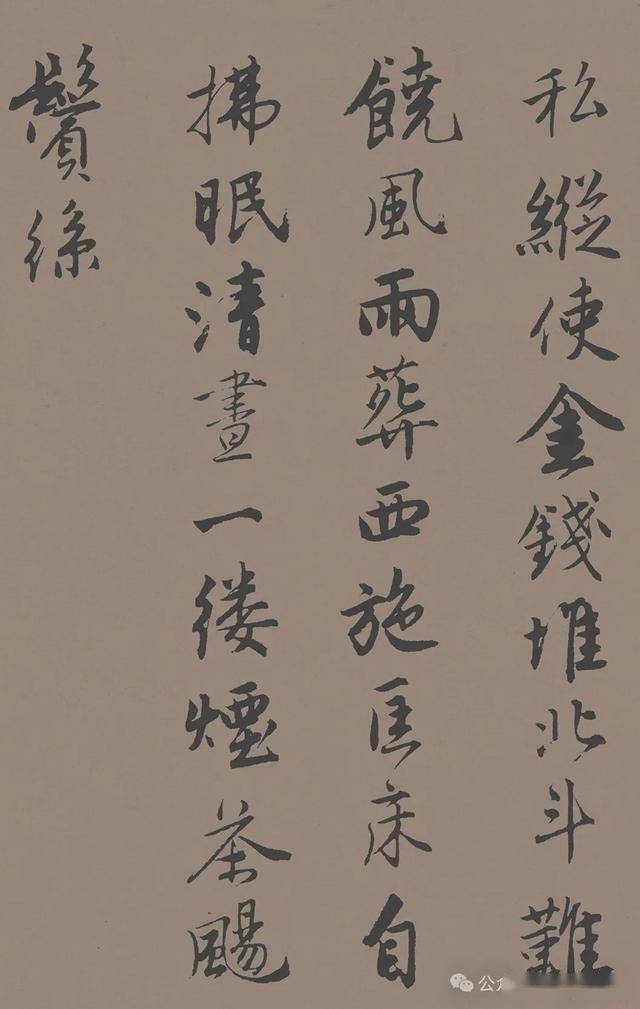 私縱使金錢堆北斗難
饒風雨葬西施匡床自
拂眠清晝一縷煙茶颺
鬢絲
公众